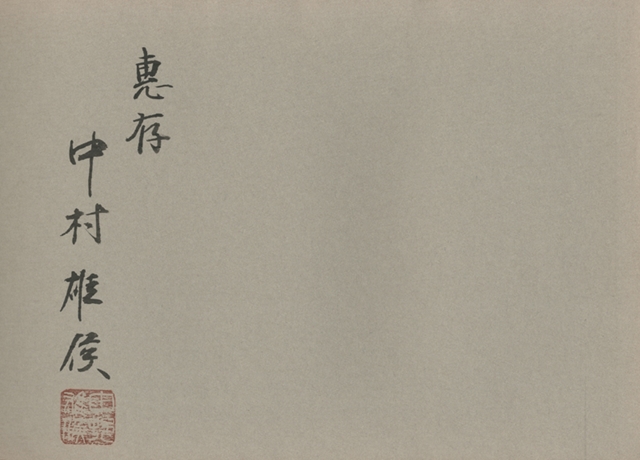 惠存
中村雄侯